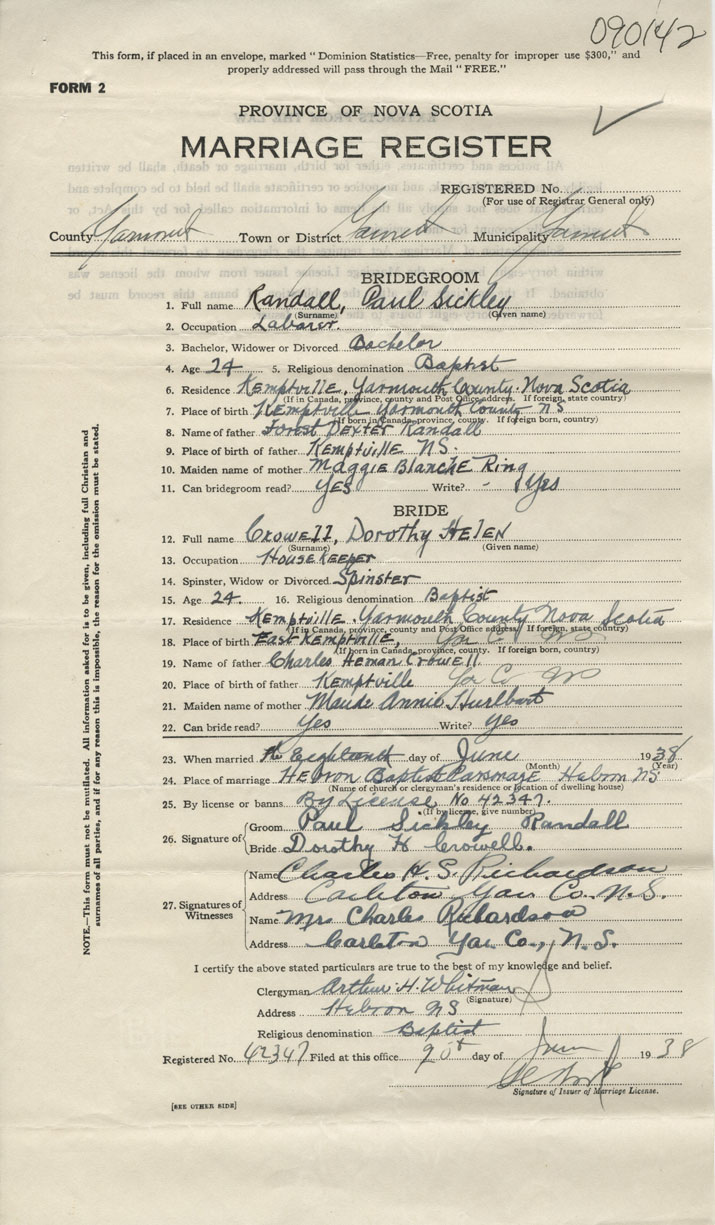 090142
This form, if placed in an envelope, marked "Dominion Statistics—Free, penalty for improper use $300," and
properly addressed will pass through the Mail "FREE."
FORM 2
PROVINCE OF NOVA SCOTIA
MARRIAGE REGISTER
REGISTERED No.
(For use of Registrar General only)
County Town or District Municipality
BRIDEGROOM
1. Full name Randall, Paul Sickley
(Surname) (Given name)
2. Occupation Laborer.
3. Bachelor, Widower or Divorced Bachelor
4. Age 24 5. Religious denomination Baptist
6. Residence Kemptville, Yarmouth County. Nova Scotia
(If in Canada, province, county and Post Office address. If foreign, state country)
7. Place of birth Kemptville Yarmouth County NS
(If born in Canada, province, county. If foreign born, country)
8. Name of father Forest Dexter Randall
9. Place of birth of father Kemptville NS.
10. Maiden name of mother Maggie Blanche Ring
11. Can bridegroom read? Yes Write? Yes
BRIDE
12. Full name Crowell, Dorothy Helen
(Surname) (Given name)
13. Occupation Housekeeper
14. Spinster, Widow or Divorced Spinster
15. Age 24. 16. Religious denomination Baptist
17. Residence Kemptville Yarmouth County Nova Scotia
(If in Canada, province, county and Post Office address. If foreign, state country)
18. Place of birth East Kemptville, Yar Co NS.
(If born in Canada, province, county. If foreign born, country)
19. Name of father Charles Heman Crowell.
20. Place of birth of father Kemptville Yar Co NS
21. Maiden name of mother Maude Annie Hurlbart
22. Can bride read? Yes Write? Yes
23. When married the Eighteenth day of June 1938
(Month) (Year)
24. Place of marriage Hebron Baptist Parsonage Hebron NS
(Name of church or clergyman's residence or location of dwelling house)
25. By license or banns By License No 42347.
(If by license, give number)
26. Signature of
Groom Paul Sickley Randall
Bride Dorothy H Crowell.
27. Signatures of Witnesses
Name Charles H. S. Richardson
Address Carleton Yar Co. N.S.
Name Mrs Charles Richardson
Address Carleton Yar Co., N.S.
I certify the above stated particulars are true to the best of my knowledge and belief.
Clergyman Arthur H. Whitman
(Signature)
Address Hebron NS
Religious denomination Baptist
Registered No. 42347 Filed at this office day of June 1938
Signature of Issuer of Marriage License.
[SEE OTHER SIDE]
NOTE.—This form must not be mutilated. All information asked for is to be given, including full Christian and
surnames of all parties, and if for any reason this is impossible, the reason for the omission must be stated.